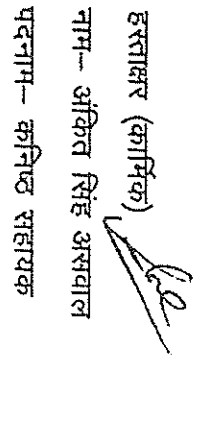 हस्ताक्षर (कार्मिक)
नाम– अंकित सिंह असवाल
पदनाम– कनिष्ठ सहायक